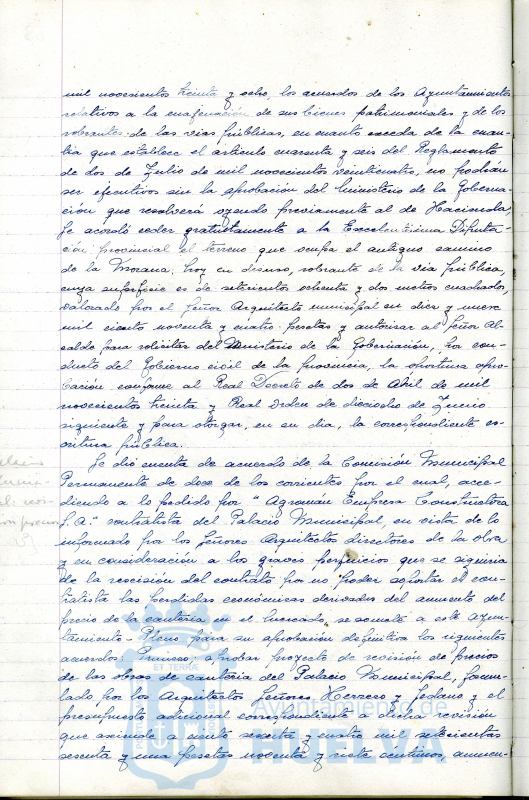 mil novecientos treinta y ocho, los acuerdos de los Ayuntamientos
relativos a la enajenación de sus bienes patrimoniales y de los
sobrantes de las vias públicas, en cuanto exceda de la cuan-
tia que establece el artículo cuarenta y seis del Reglamento
de dos de Julio de mil novecientos veinticuatro, no podrán
ser ejecutivos sin la aprobación del Ministerio de la Goberna-
ción que resolverá oyendo previamente al de Hacienda,
se acordó ceder gratuitamente a la Excelentisima Diputa-
ción provincial el terreno que ocupa el antiguo camino
de la Morana, hoy en desuso, sobrante de la via pública,
cuya superficie es de setecientos ochenta y dos metros cuadrados,
valorado por el Señor Arquitecto municipal en diez y nueve
mil ciento noventa y cuatro pesetas y autorizar al Señor Al-
calde para solicitar del Ministerio de la Gobernación, por con-
ducto del Gobierno civil de la provincia, la oportuna apro-
bación conforme al Real Decreto de dos de Abril de mil
novecientos treinta y Real orden de dieciocho de Junio
siguiente y para otorgar, en su dia, la correspondiente es-
critura pública.
Se dió cuenta de acuerdo de la Comisión Municipal
Permanente de doce de los corrientes por el cual, acce-
diendo a lo pedido por "Agromán Empresa Constructora
S.A." contratista del Palacio Municipal, en vista de lo
informado por los Señores Arquitectos directores de la obra
y en consideración a los graves perjuicios que se siguiria
de la rescisión del contrato por no poder soportar el con-
tratista las perdidas económicas derivadas del aumento del
precio de la cantería en el mercado, se somete a este Ayun-
tamiento-Pleno para su aprobación definitiva los siguientes
acuerdos: Primero: aprobar proyecto de revisión de precios
de las obras de cantería del Palacio Municipal, formu-
lado por los Arquitectos Señores Herrero y Jodano y el
presupuesto adicional correspondiente a dicha revisión
que asciende a ciento sesenta y cuatro mil setecientas
sesenta y una pesetas noventa y siete centimos, aumen-
ET TERRA
Ayuntamiento de
HUELVA